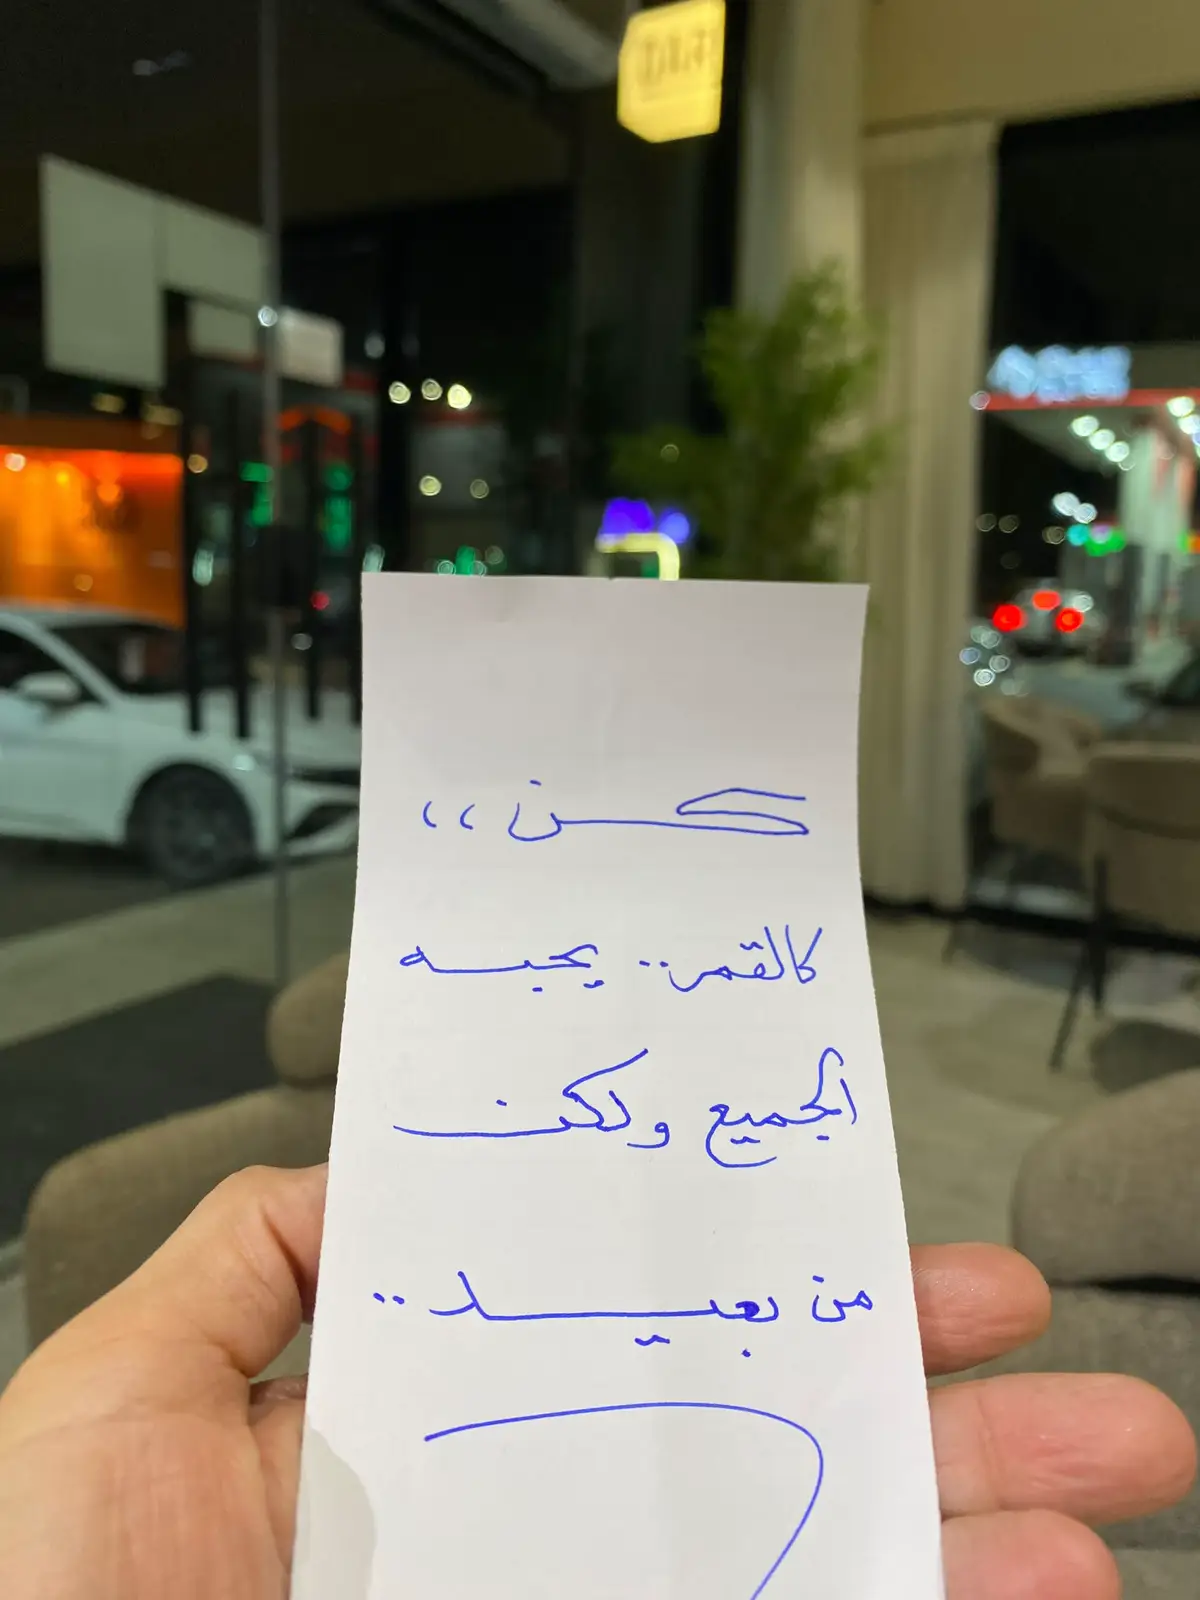 كن ،،
كالقمر.. يحبه
الجميع ولكن
من بعيد..